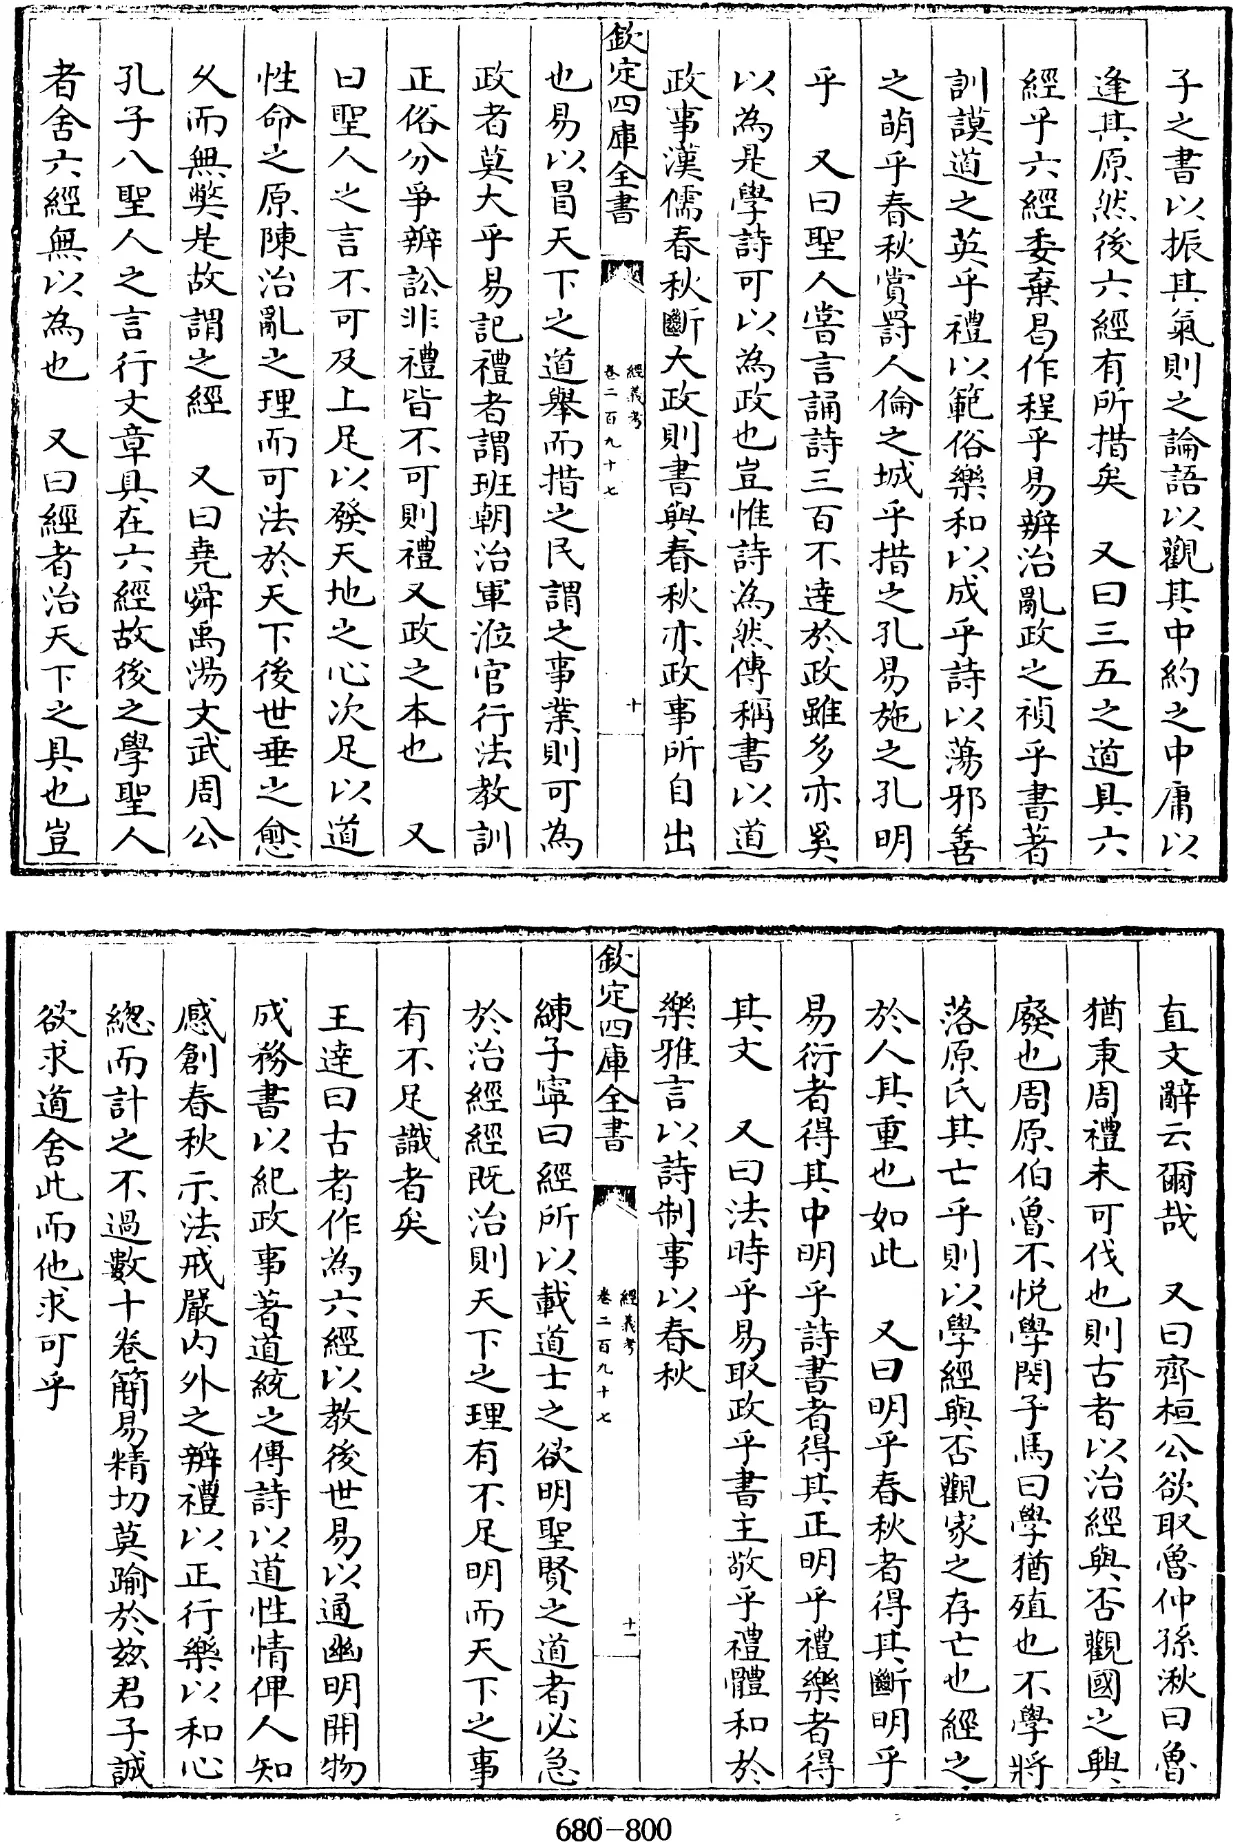 子之書以振其氣則之論語以觀其中約之中庸以
逢其原然後六經有所措矣　又曰三五之道具六
經乎六經委棄曷作程乎易辨治亂政之禎乎書著
訓謨道之英乎禮以範俗樂和以成乎詩以蕩邪善
之萌乎春秋賞罰人倫之城乎措之孔易施之孔明
乎　又曰聖人嘗言誦詩三百不達於政雖多亦奚
以為是學詩可以為政也豈惟詩為然傳稱書以道
政事漢儒春秋斷大政則書與春秋亦政事所自出
欽定四庫全書
經義考
卷二百九十七
十
也易以冒天下之道舉而措之民謂之事業則可為
政者莫大乎易記禮者謂班朝治軍涖官行法教訓
正俗分爭辨訟非禮皆不可則禮又政之本也　又
曰聖人之言不可及上足以發天地之心次足以道
性命之原陳治亂之理而可法於天下後世垂之愈
久而無弊是故謂之經　又曰堯舜禹湯文武周公
孔子八聖人之言行文章具在六經故後之學聖人
者舍六經無以為也　又曰經者治天下之具也豈
直文辭云爾哉　又曰齊桓公欲取魯仲孫湫曰魯
猶秉周禮未可伐也則古者以治經與否觀國之興
廢也周原伯魯不悅學閔子馬曰學猶殖也不學將
落原氏其亡乎則以學經與否觀家之存亡也經之
於人其重也如此　又曰明乎春秋者得其斷明乎
易衍者得其中明乎詩書者得其正明乎禮樂者得
其文　又曰法時乎易取政乎書主敬乎禮體和於
樂雅言以詩制事以春秋
欽定四庫全書
經義考
卷二百九十七
十一
練子寧曰經所以載道士之欲明聖賢之道者必急
於治經經既治則天下之理有不足明而天下之事
有不足識者矣
王達曰古者作為六經以教後世易以通幽明開物
成務書以紀政事著道統之傳詩以道性情俾人知
感創春秋示法戒嚴內外之辨禮以正行樂以和心
總而計之不過數十卷簡易精切莫踰於茲君子誠
欲求道舍此而他求可乎
680-800